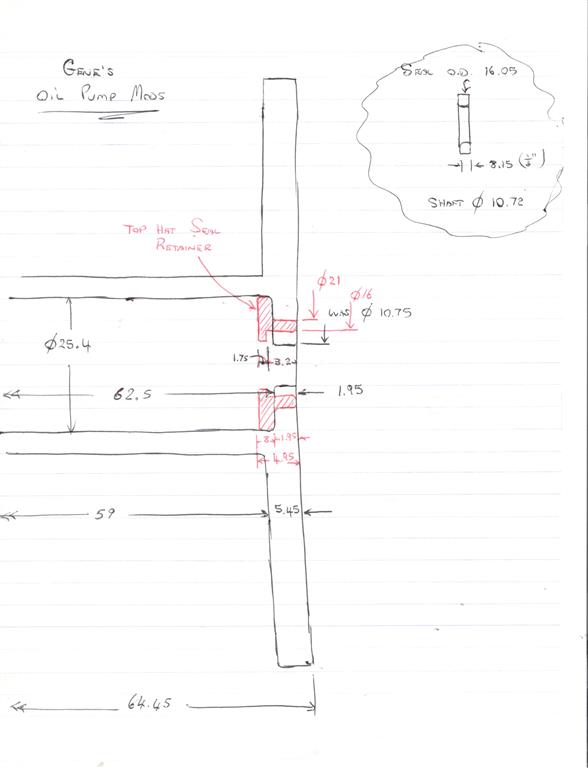 GENE'S
OIL PUMP MODS
SEAL O.D. 16.05
SHAFT Ø 10.72
TOP HAT SEAL
RETAINER
Ø21
Ø16
WAS Ø 10.75
Ø25.4
1.75
3.2
62.5
1.95
3
1.95
4.95
59
5.45
64.45